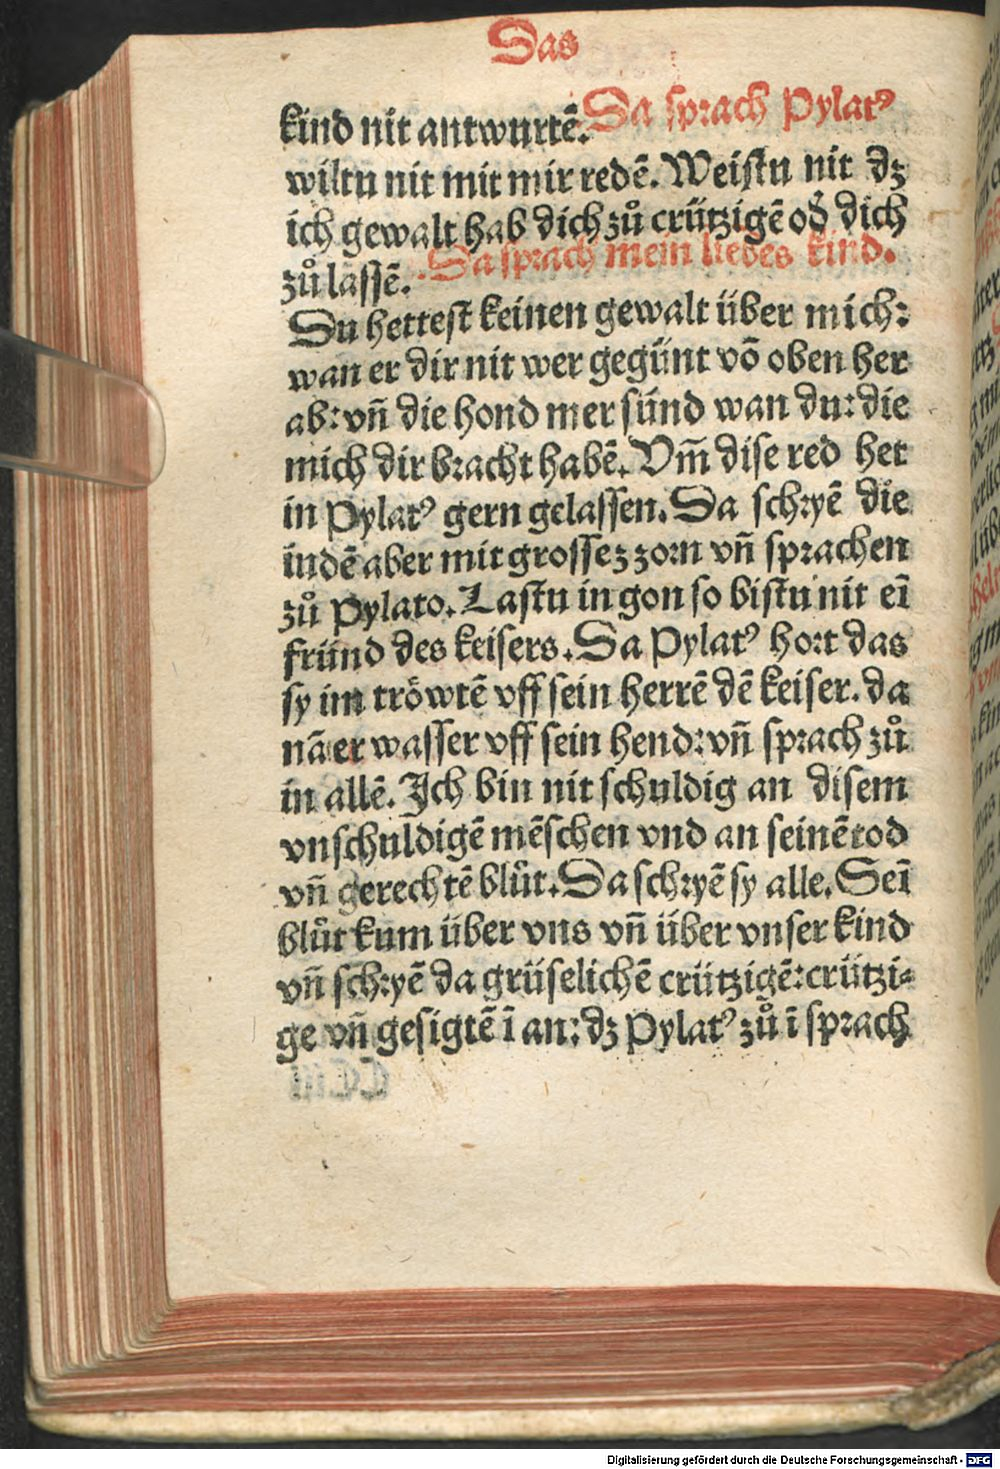 Das
kind nit antwurtē. Da sprach Pylatꝰ
wiltu nit mit mir redē. Weistu nit dz
ich gewalt hab dich zů crützigē od̓ dich
zů lassē. Da sprach mein liebes kind.
Du hettest keinen gewalt über mich:
wan er dir nit wer gegünt vō oben her
ab: vn̄ die hond mer sünd wan du: die
mich dir bracht habē. Vm̄ dise red het
in Pylatꝰ gern gelassen. Da schryē die
iudē aber mit grossez zorn vn̄ sprachen
zů pylato. Lastu in gon so bistu nit eī
fründ des keisers. Da Pylatꝰ hort das
sy im tröwtē vff sein herrē dē keiser. da
nā er wasser vff sein hend: vn̄ sprach zů
in allē. Ich bin nit schuldig an disem
vnschuldigē mēschen vnd an seinē tod
vn̄ gerechtē blůt. Da schryē sy alle. Seī
blůt kum über vns vn̄ über vnser kind
vn̄ schryē da grüselichē crützigē: crützi⸗
ge vn̄ gesigtē ī an: dz Pylatꝰ zů ī sprach
Digitalisierung gefördert durch die Deutsche Forschungsgemeinschaft - DFG